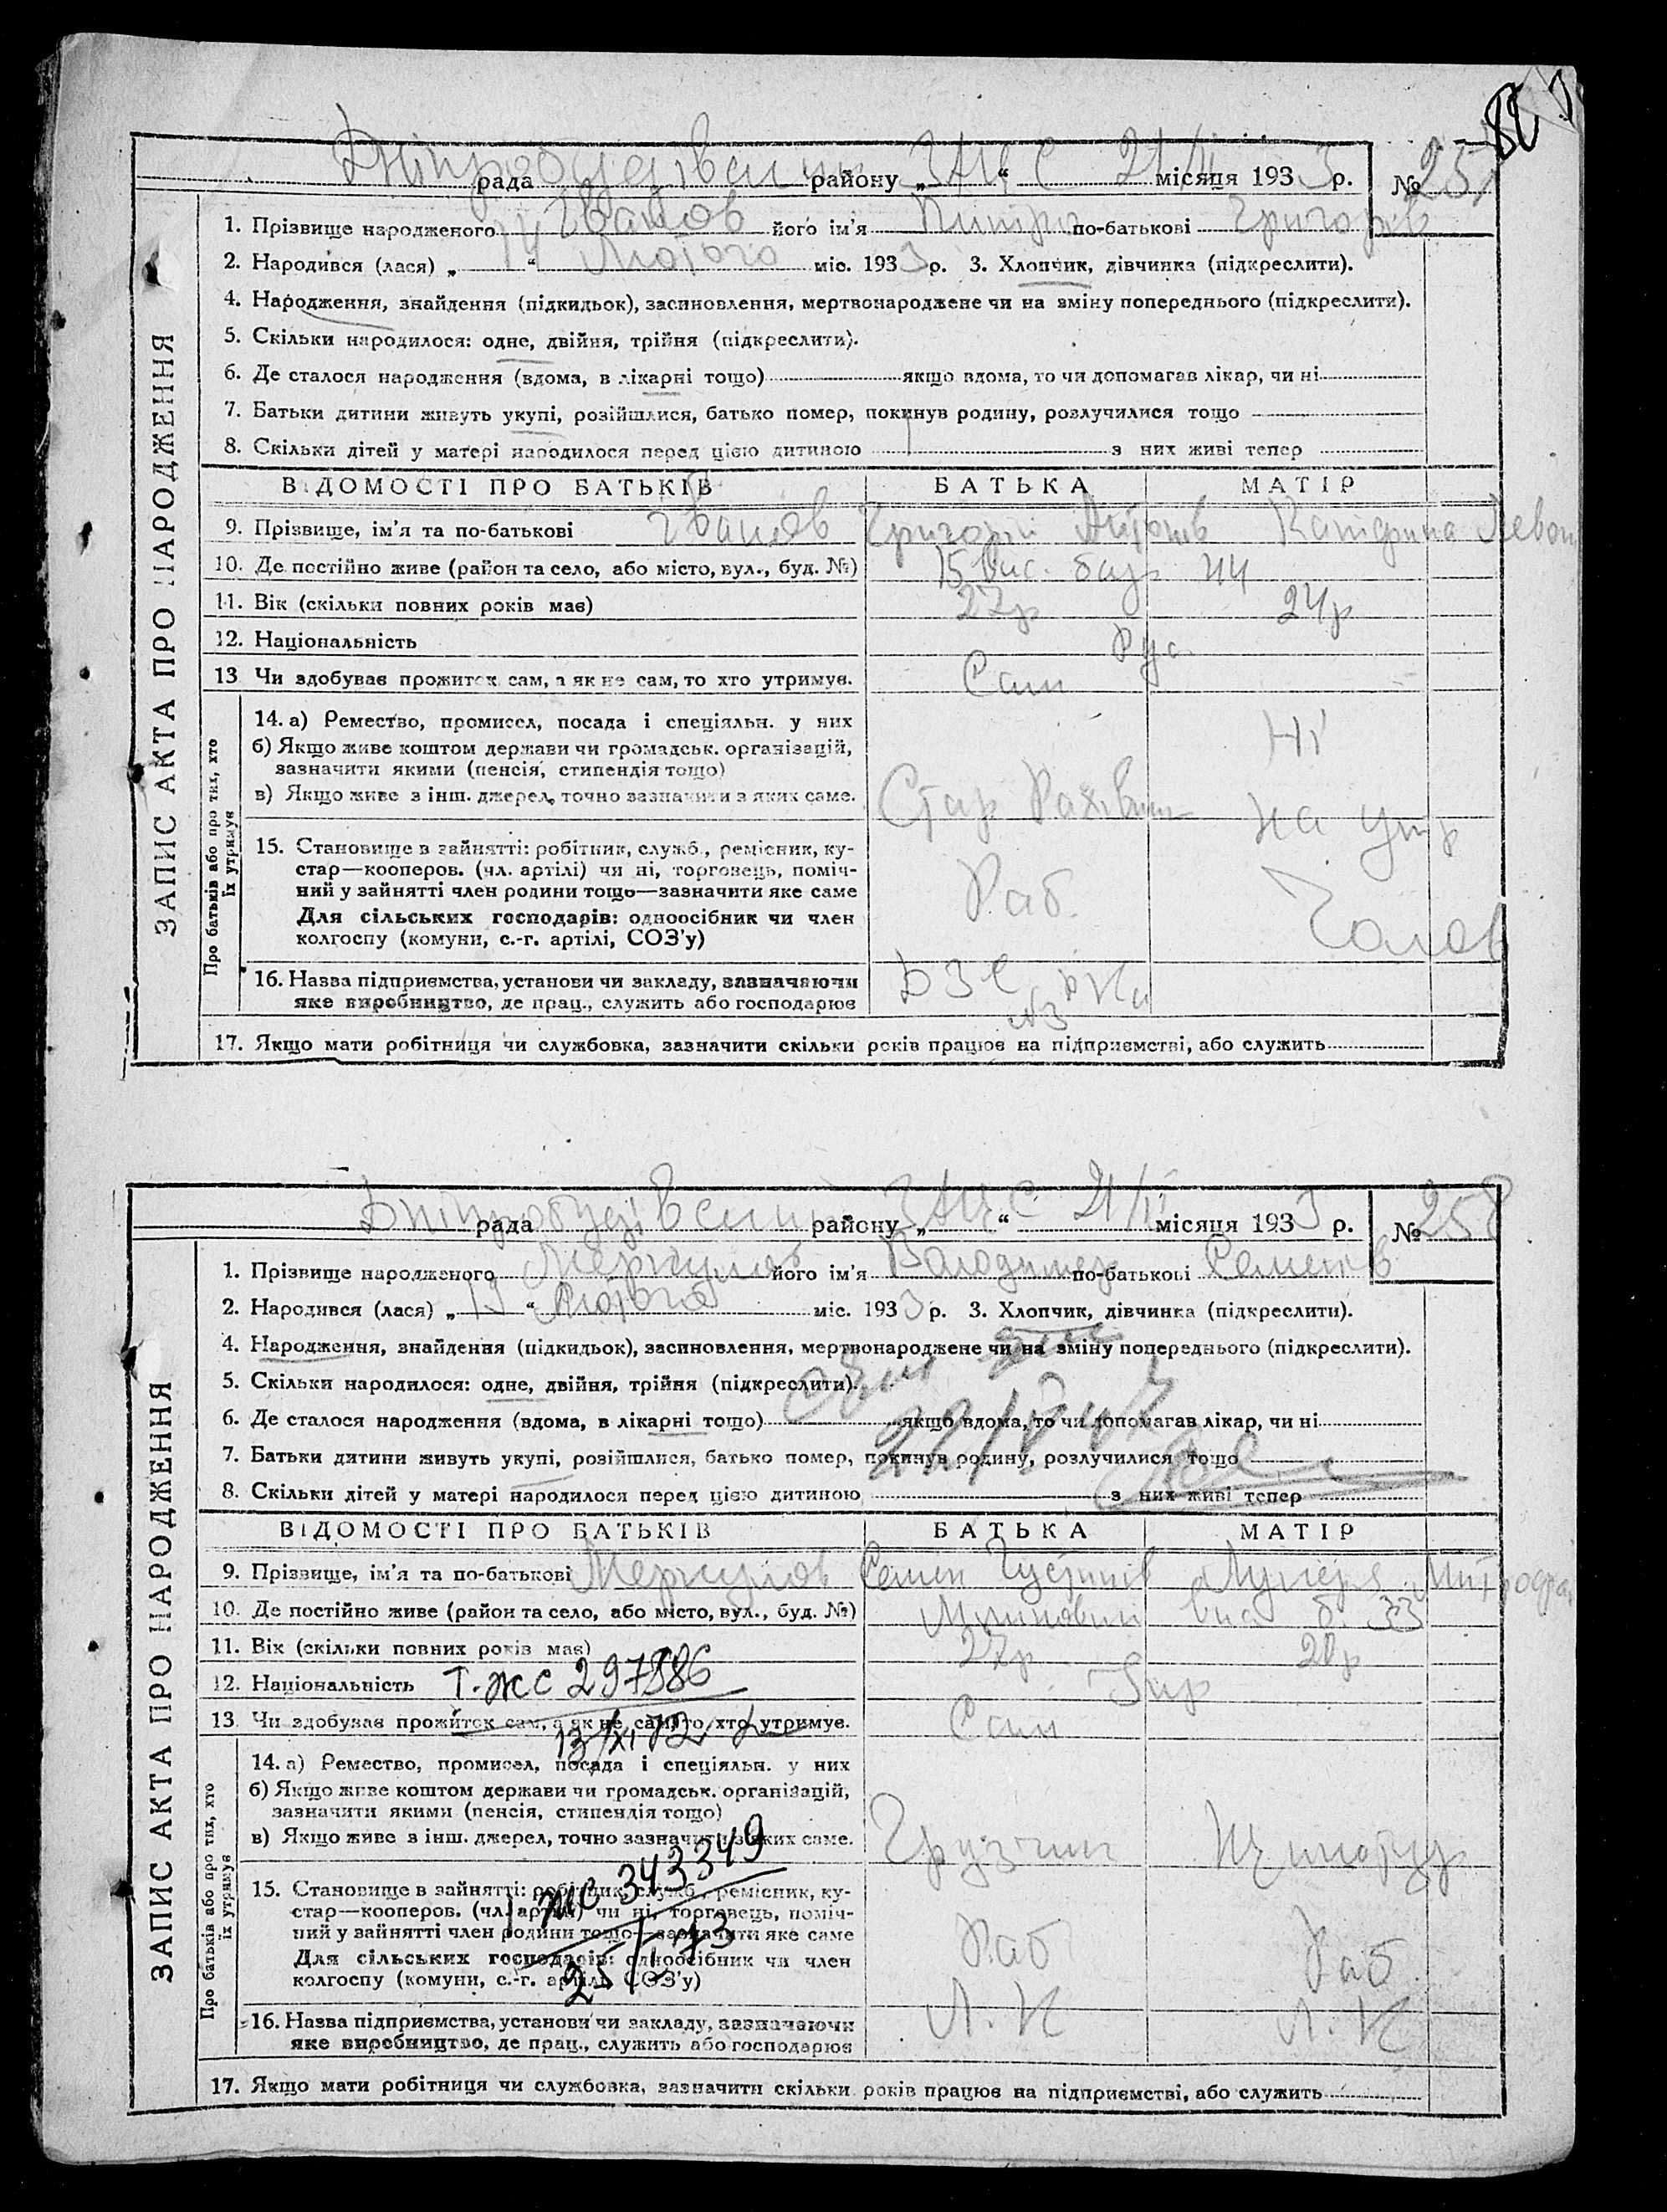 Дніпробудівський ЗАЦС 21/II
рада району „ “ місяця 1933 р. № 257
1. Прізвище народженого Іванов його ім'я по-батькові Григорів
2. Народився (лася) „14“ Лютого міс. 1933 р. 3. Хлопчик, дівчинка (підкреслити).
4. Народження, знайдення (підкидьок), засиновлення, мертвонароджене чи на зміну попереднього (підкреслити).
5. Скільки народилося: одне, двійня, трійня (підкреслити).
6. Де сталося народження (вдома, в лікарні тощо) якщо вдома, то чи допомагав лікар, чи ні
7. Батьки дитини живуть укупі, розійшлися, батько помер, покинув родину, розлучилися тощо
8. Скільки дітей у матері народилося перед цією дитиною з них живі тепер
ЗАПИС АКТА ПРО НАРОДЖЕННЯ
ВІДОМОСТІ ПРО БАТЬКІВ БАТЬКА МАТІР
9. Прізвище, ім'я та по-батькові Іванов Григорій Антонів Катерина Левон
10. Де постійно живе (район та село, або місто, вул., буд. №) 15 Вис. бар 44
11. Вік (скільки повних років має) 27р 24р
12. Національність Рус.
13 Чи здобуває прожиток сам, а як не сам, то хто утримує. Сам -
Про батьків або про тих, хто їх утримує
14. а) Ремество, промисел, посада і спеціяльн. у них Ні
б) Якщо живе коштом держави чи громадськ. організацій,
зазначити якими (пенсія, стипендія тощо)
в) Якщо живе з інш. джерел, точно зазначити з яких саме. Стар. Рахівник на утр
15. Становище в зайнятті: робітник, служб., ремісник, ку-
стар—кооперов. (чл. артілі) чи ні, торговець, поміч-
ний у зайнятті член родини тощо—зазначити яке саме Раб. Чолов
Для сільських господарів: одноосібник чи член
колгоспу (комуни, с.-г. артілі, СОЗ'у)
16. Назва підприємства, установи чи закладу, зазначаючи ДЗС
яке виробництво, де прац., служить або господарює №3
17. Якщо мати робітниця чи службовка, зазначити скільки років працює на підприємстві, або служить
Дніпробудівський ЗАЦС 21/II
рада району „ “ місяця 1933 р. № 258
1. Прізвище народженого Меркулов його ім'я Володимер по-батькові Семенів
2. Народився (лася) „ “ Лютого міс. 1933 р. 3. Хлопчик, дівчинка (підкреслити).
4. Народження, знайдення (підкидьок), засиновлення, мертвонароджене чи на зміну попереднього (підкреслити).
5. Скільки народилося: одне, двійня, трійня (підкреслити).
6. Де сталося народження (вдома, в лікарні тощо) якщо вдома, то чи допомагав лікар, чи ні
7. Батьки дитини живуть укупі, розійшлися, батько помер, покинув родину, розлучилися тощо
8. Скільки дітей у матері народилося перед цією дитиною з них живі тепер
ЗАПИС АКТА ПРО НАРОДЖЕННЯ
ВІДОМОСТІ ПРО БАТЬКІВ БАТЬКА МАТІР
9. Прізвище, ім'я та по-батькові Меркулов Семен Устинів
10. Де постійно живе (район та село, або місто, вул., буд. №) вис б. 33
11. Вік (скільки повних років має) 27р 20р
12. Національність Т. ЖС 297886 Укр
13 Чи здобуває прожиток сам, а як не сам, то хто утримує. Сам
13/XI 72
Про батьків або про тих, хто їх утримує
14. а) Ремество, промисел, посада і спеціяльн. у них
б) Якщо живе коштом держави чи громадськ. організацій,
зазначити якими (пенсія, стипендія тощо)
в) Якщо живе з інш. джерел, точно зазначити з яких саме. Грузчик Чорнороб
ЖС 343349
15. Становище в зайнятті: робітник, служб., ремісник, ку-
стар—кооперов. (чл. артілі) чи ні, торговець, поміч-
ний у зайнятті член родини тощо—зазначити яке саме Раб Раб
Для сільських господарів: одноосібник чи член
колгоспу (комуни, с.-г. артілі, СОЗ'у)
16. Назва підприємства, установи чи закладу, зазначаючи Л.К Л.К
яке виробництво, де прац., служить або господарює
17. Якщо мати робітниця чи службовка, зазначити скільки років працює на підприємстві, або служить